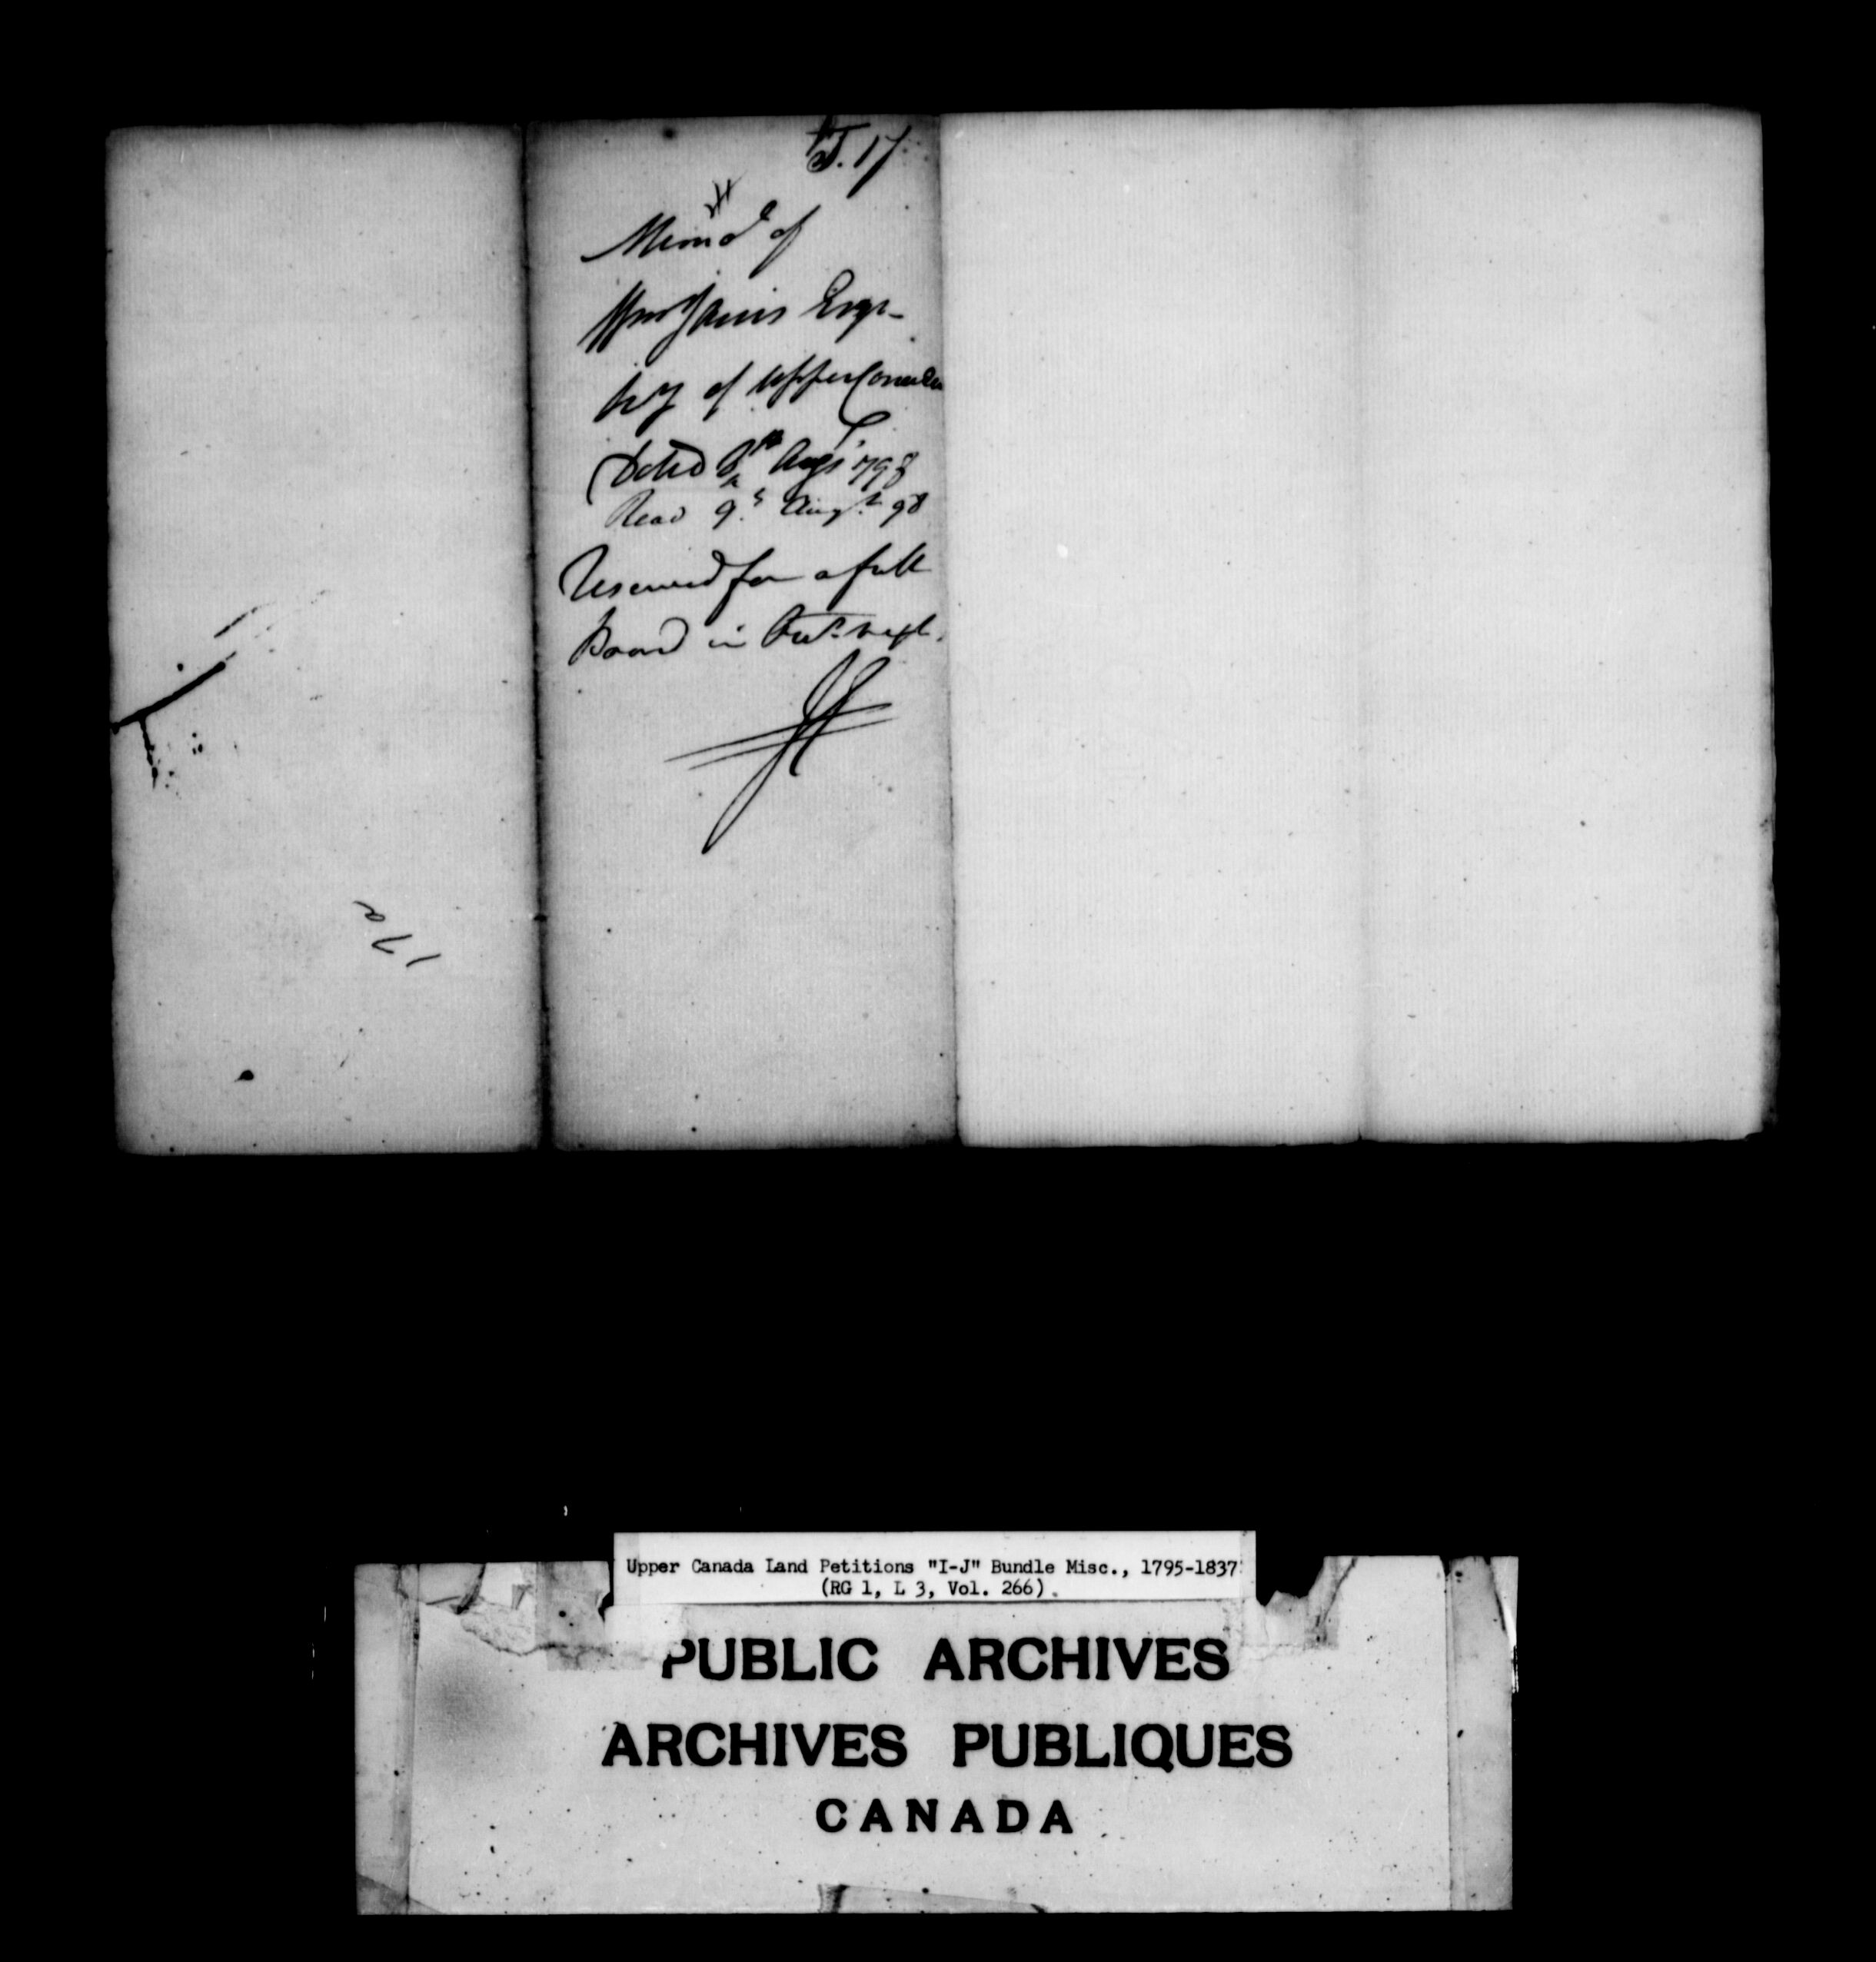 J. 17
Memol of
Wm Jarvis Esqr-
Secy of Upper Canada
Dated 8th Augt 1798
Read 9th Augt 98
Reserved for a full
Board in Octr next.
17a
Upper Canada Land Petitions "I-J" Bundle Misc., 1795-1837
(RG 1, L 3, Vol. 266).
PUBLIC ARCHIVES
ARCHIVES PUBLIQUES
CANADA